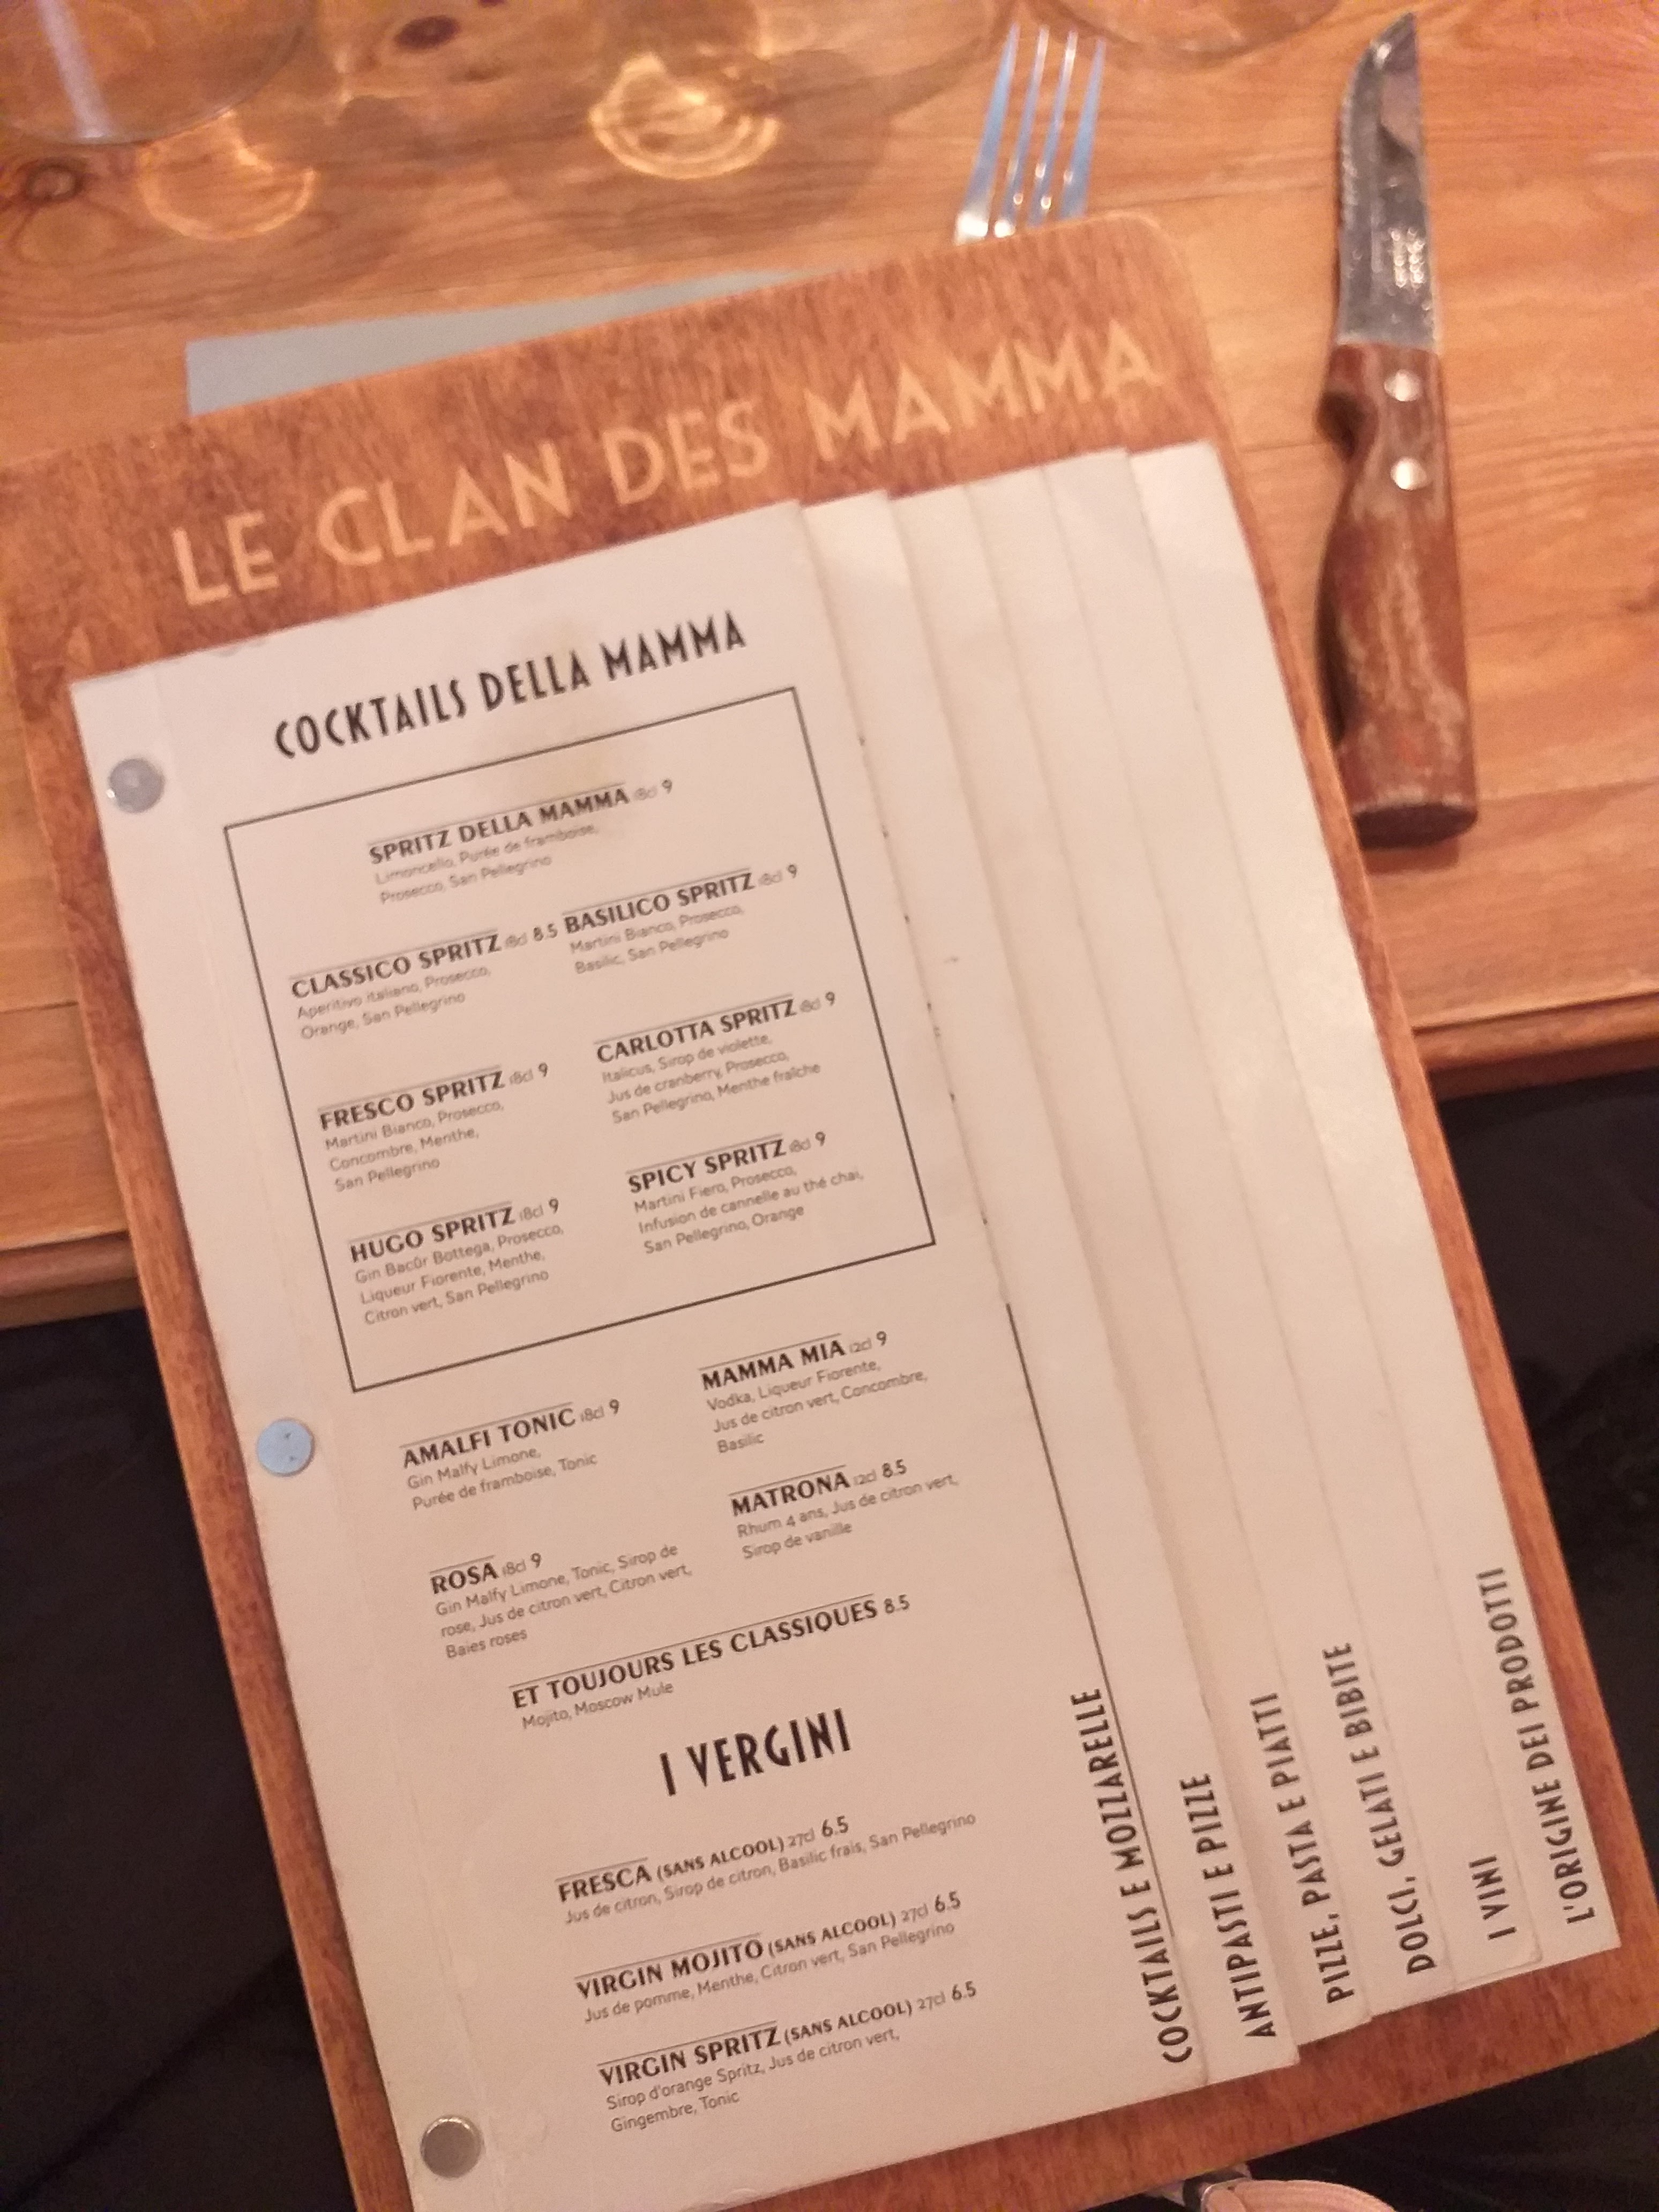 LE CLAN DES MAMMA
COCKTAILS DELLA MAMMA
SPRITZ DELLA MAMMA 18cl 9
Limoncello, Purée de framboise,
Prosecco, San Pellegrino
CLASSICO SPRITZ 18cl 8.5
Aperitivo italiano, Prosecco,
Orange, San Pellegrino
BASILICO SPRITZ 18cl 9
Martini Bianco, Prosecco,
Basilic, San Pellegrino
FRESCO SPRITZ 18cl 9
Martini Bianco, Prosecco,
Concombre, Menthe,
San Pellegrino
CARLOTTA SPRITZ 18cl 9
Italicus, Sirop de violette,
Jus de cranberry, Prosecco,
San Pellegrino, Menthe fraîche
HUGO SPRITZ 18cl 9
Gin Bacûr Bottega, Prosecco,
Liqueur Fiorente, Menthe,
Citron vert, San Pellegrino
SPICY SPRITZ 18cl 9
Martini Fiero, Prosecco,
Infusion de cannelle au thé chai,
San Pellegrino, Orange
AMALFI TONIC 18cl 9
Gin Malfy Limone,
Purée de framboise, Tonic
MAMMA MIA 12cl 9
Vodka, Liqueur Fiorente,
Jus de citron vert, Concombre,
Basilic
ROSA 18cl 9
Gin Malfy Limone, Tonic, Sirop de
rose, Jus de citron vert, Citron vert,
Baies roses
MATRONA 12cl 8.5
Rhum 4 ans, Jus de citron vert,
Sirop de vanille
ET TOUJOURS LES CLASSIQUES 8.5
Mojito, Moscow Mule
I VERGINI
FRESCA (SANS ALCOOL) 27cl 6.5
Jus de citron, Sirop de citron, Basilic frais, San Pellegrino
VIRGIN MOJITO (SANS ALCOOL) 27cl 6.5
Jus de pomme, Menthe, Citron vert, San Pellegrino
VIRGIN SPRITZ (SANS ALCOOL) 27cl 6.5
Sirop d'orange Spritz, Jus de citron vert,
Gingembre, Tonic
COCKTAILS E MOZZARELLE
ANTIPASTI E PIZZE
PIZZE, PASTA E PIATTI
DOLCI, GELATI E BIBITE
I VINI
L'ORIGINE DEI PRODOTTI